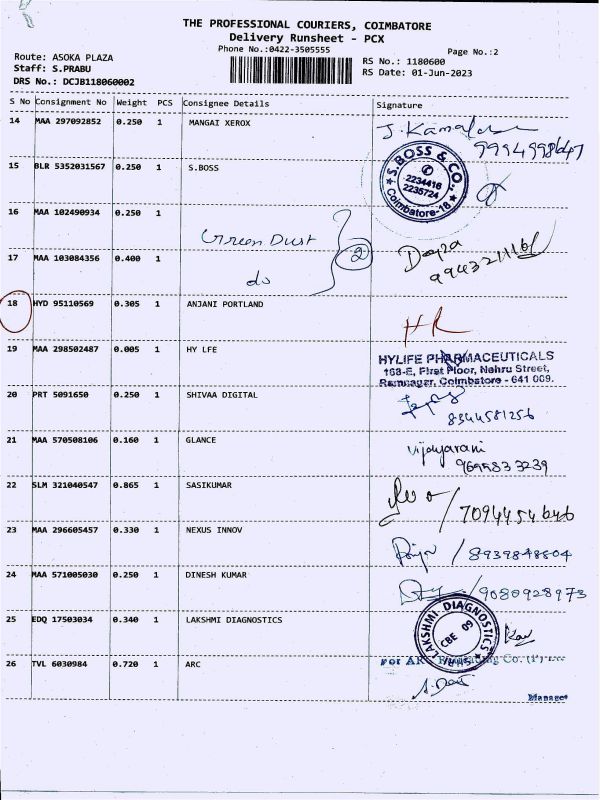 THE PROFESSIONAL COURIERS, COIMBATORE
Delivery Runsheet - PCX
Phone No.:0422-3505555
Page No.:2
Route: ASOKA PLAZA
Staff: S.PRABU
DRS No.: DCJB118060002
RS No.: 1180600
RS Date: 01-Jun-2023
S No Consignment No Weight PCS Consignee Details Signature
14 MAA 297092852 0.250 1 MANGAI XEROX
15 BLR 5352031567 0.250 1 S.BOSS
S.BOSS & CO.
2234416
2235724
Coimbatore-18
16 MAA 102490934 0.250 1
Green Dust 2
17 MAA 103084356 0.400 1
do
18 HYD 95110569 0.305 1 ANJANI PORTLAND
HR
19 MAA 298502487 0.005 1 HY LFE
HYLIFE PHARMACEUTICALS
168-E, First Floor, Nehru Street,
Ramnagar, Coimbatore - 641 009.
20 PRT 5091650 0.250 1 SHIVAA DIGITAL
8344581256
21 MAA 570508106 0.160 1 GLANCE
Vijayarani
9699833239
22 SLM 321040547 0.865 1 SASIKUMAR
7094454646
23 MAA 296605457 0.330 1 NEXUS INNOV
/ 8939848804
24 MAA 571005030 0.250 1 DINESH KUMAR
/9080928973
25 EDQ 17503034 0.340 1 LAKSHMI DIAGNOSTICS
LAKSHMI DIAGNOSTICS
CBE 09
26 TVL 6030984 0.720 1 ARC
Manager